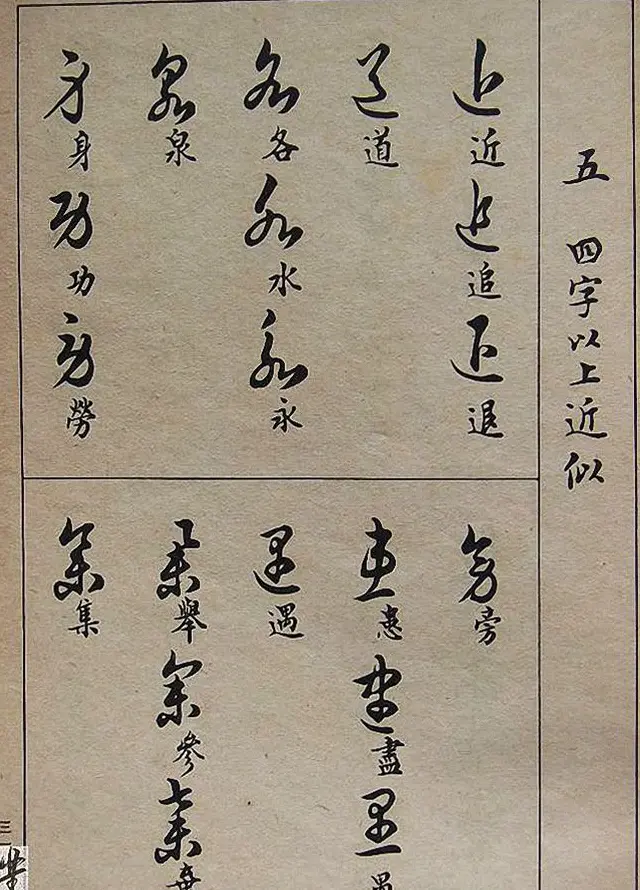 五 四字以上近似
近 追 退
道
各 水 永
泉
身 功 勞
旁
惠 盡
遇
舉 參
集
三